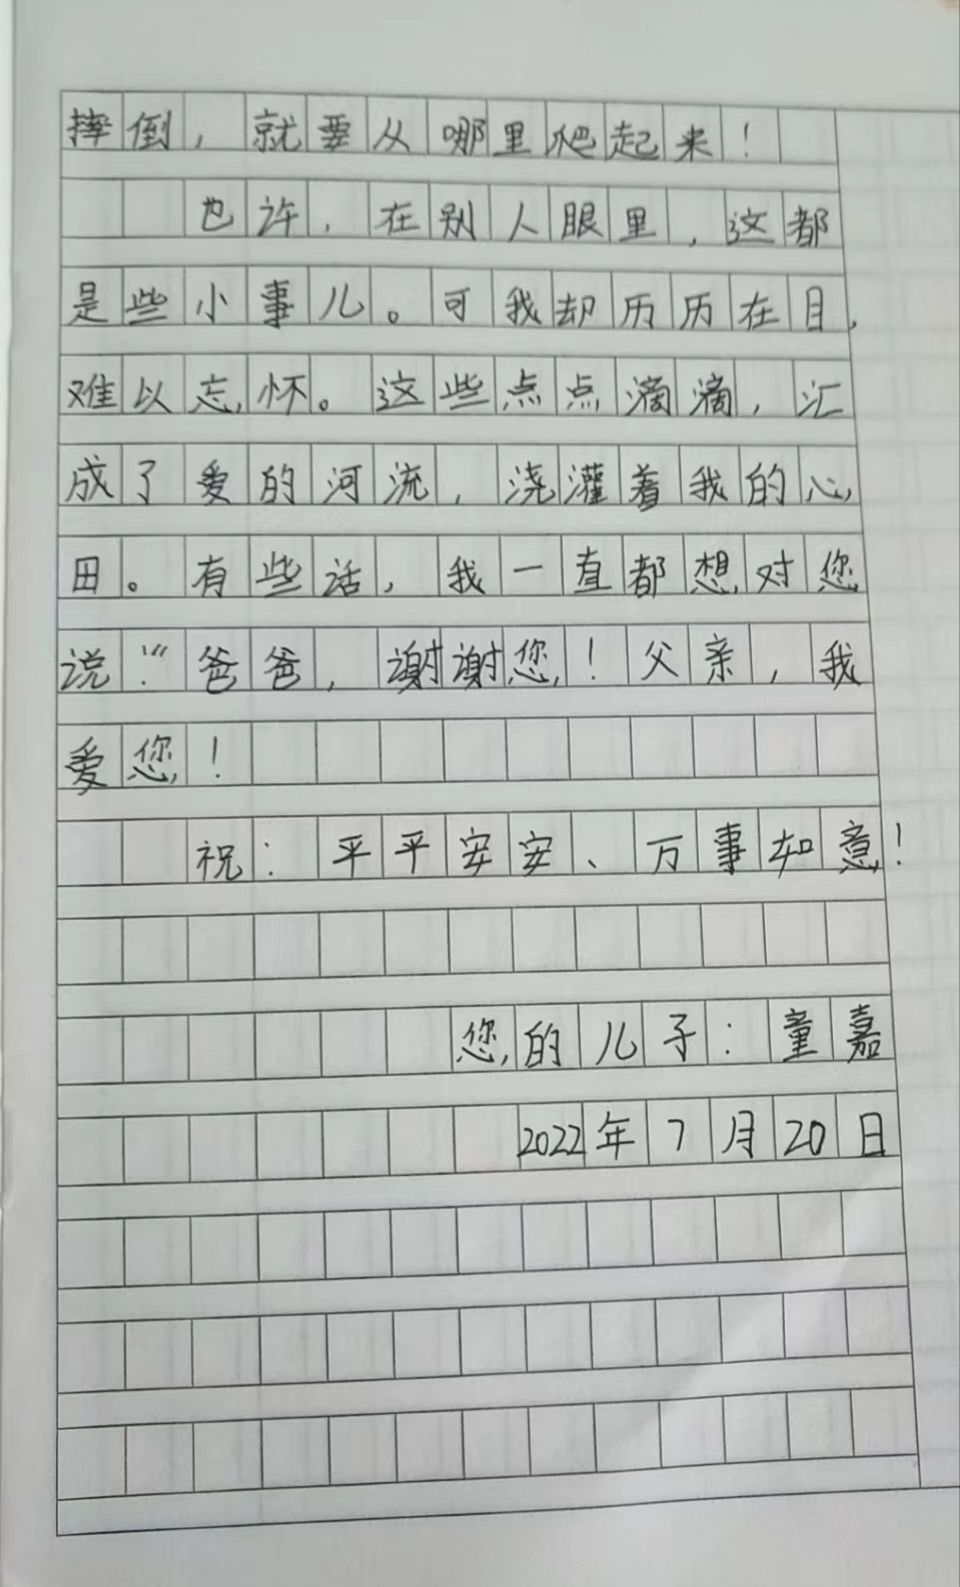 摔倒，就要从哪里爬起来！
也许，在别人眼里，这都
是些小事儿。可我却历历在目，
难以忘怀。这些点点滴滴，汇
成了爱的河流，浇灌着我的心
田。有些话，我一直都想对您
说：“爸爸，谢谢您！父亲，我
爱您！
祝：平平安安、万事如意！
您的儿子：童嘉
2022年7月20日